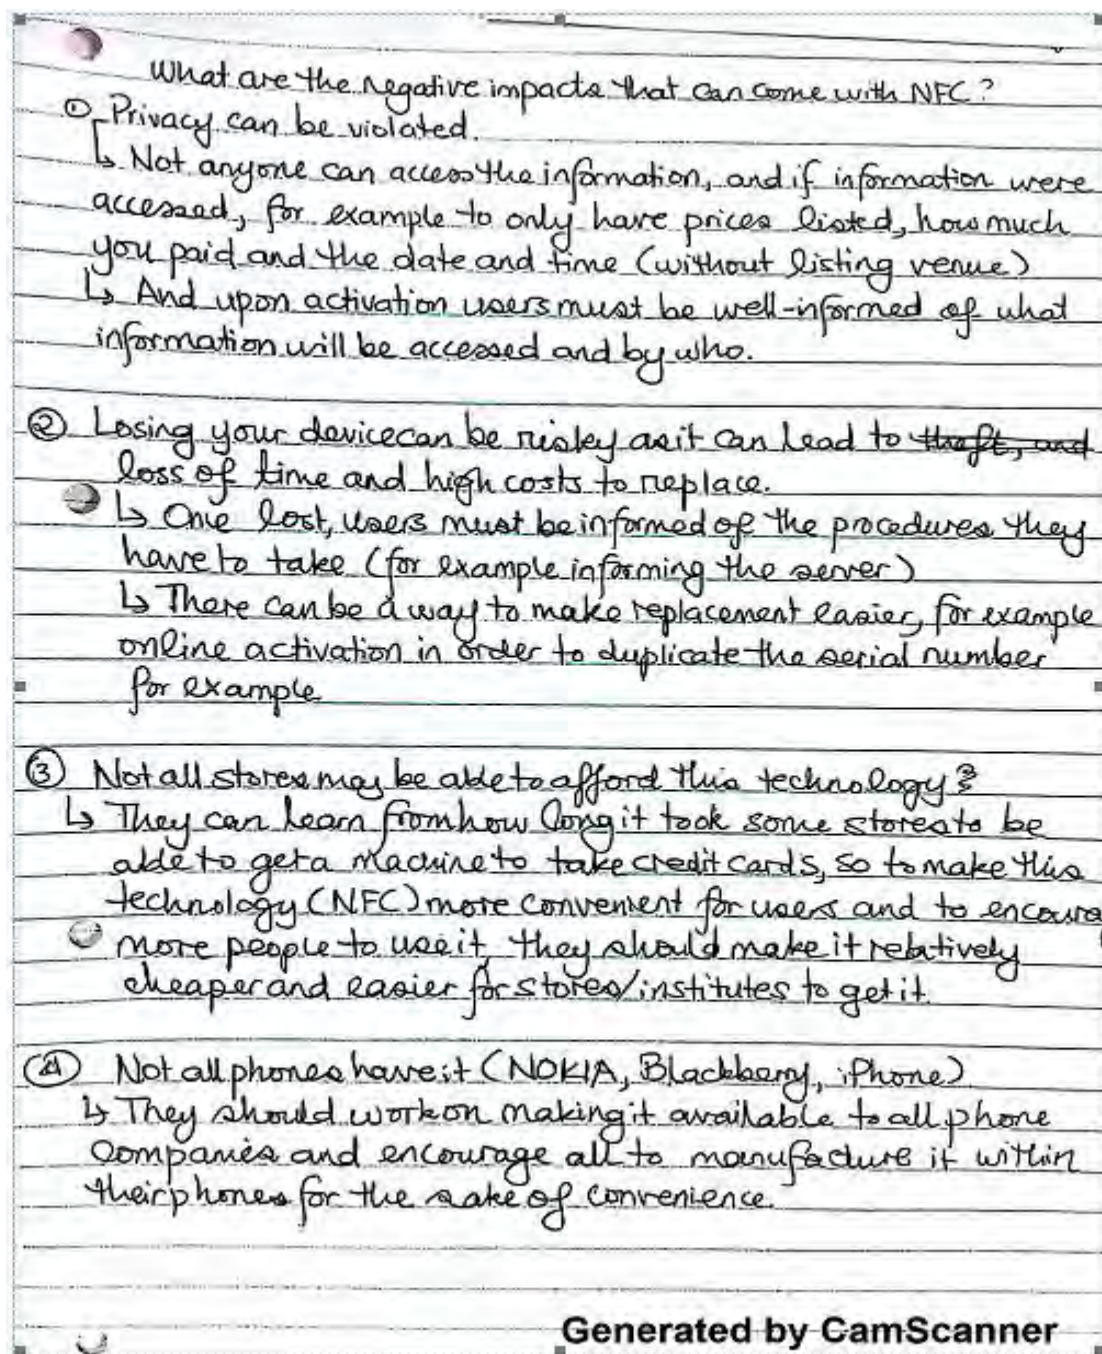 What are the negative impacts that can come with NFC?
① Privacy can be violated.
↳ Not anyone can access the information, and if information were
accessed, for example to only have prices listed, how much
you paid and the date and time (without listing venue)
↳ And upon activation users must be well-informed of what
information will be accessed and by who.
② Losing your device can be risky as it can lead to theft, and
loss of time and high costs to replace.
↳ One lost, users must be informed of the procedures they
have to take (for example informing the server)
↳ There can be a way to make replacement easier, for example
online activation in order to duplicate the serial number
for example
③ Not all stores may be able to afford this technology?
↳ They can learn from how long it took some stores to be
able to get a machine to take credit cards, so to make this
technology (NFC) more convenient for users and to encoura
more people to use it, they should make it relatively
cheaper and easier for stores/institutes to get it.
④ Not all phones have it (NOKIA, Blackberry, iPhone)
↳ They should work on making it available to all phone
companies and encourage all to manufacture it within
their phones for the sake of convenience.
Generated by CamScanner